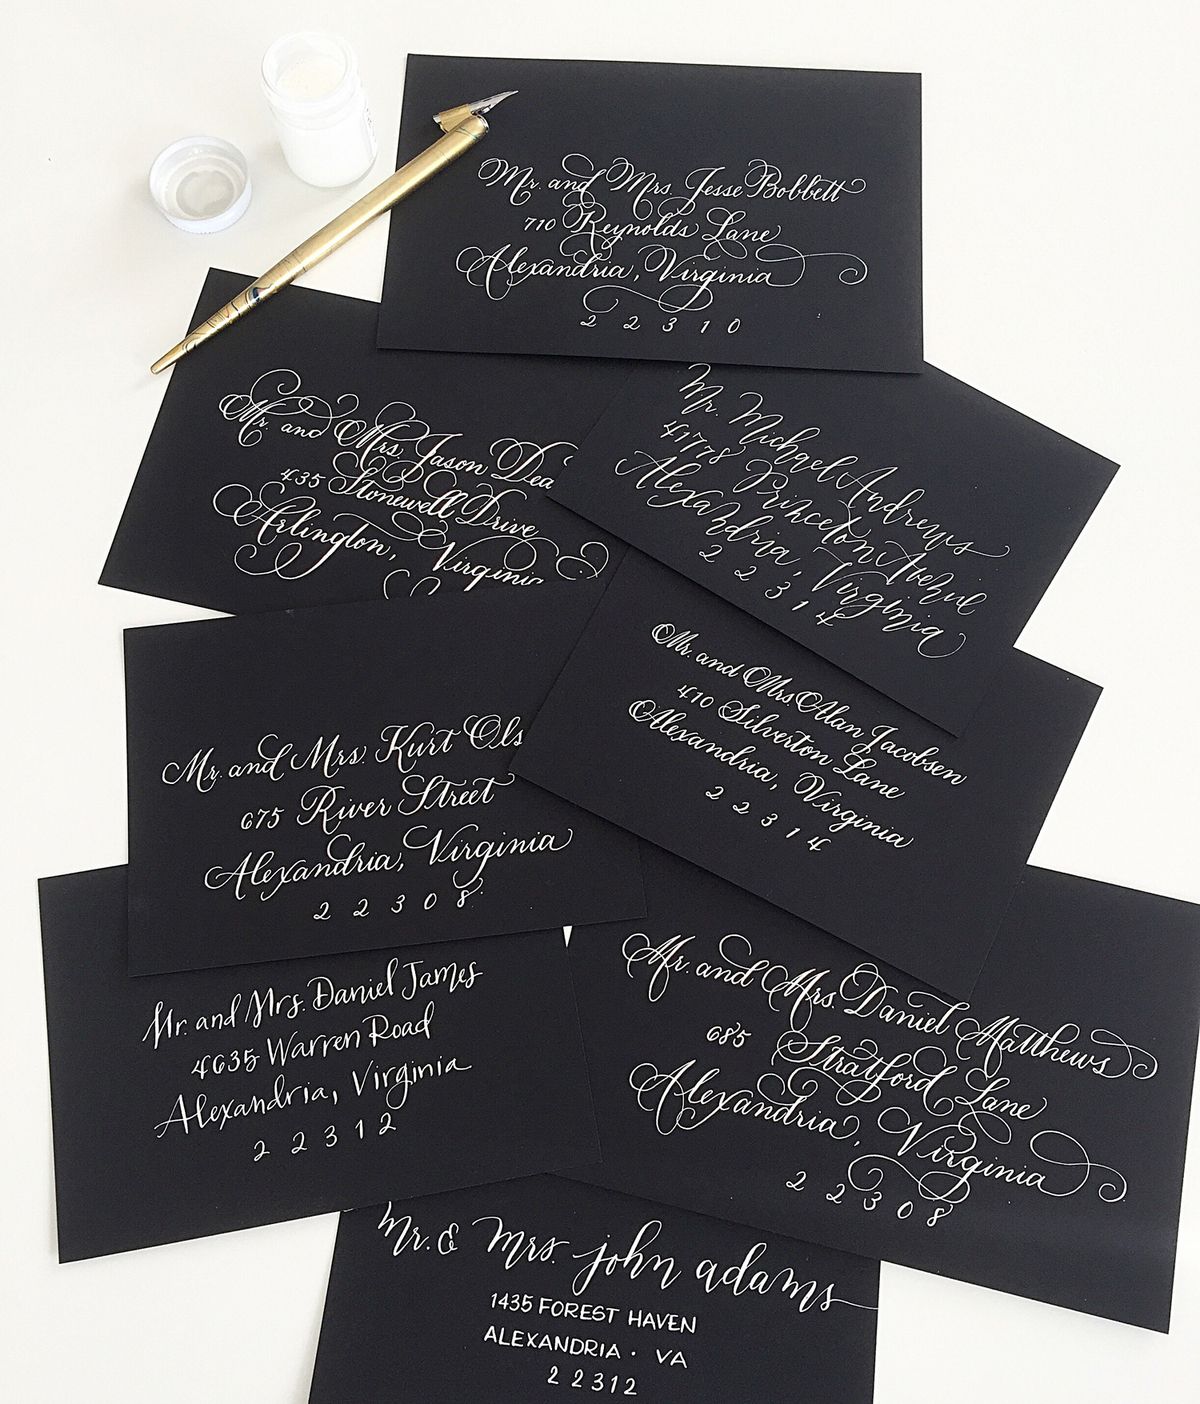 Mr. and Mrs. Jesse Bobbett
710 Reynolds Lane
Alexandria, Virginia
2 2 3 1 0
Mr. and Mrs. Jason Dea
435 Stonewell Drive
Arlington, Virginia
Mr. Michael Andrews
41778 Princeton Avenue
Alexandria, Virginia
2 2 3 1 4
Mr. and Mrs. Kurt Ols
675 River Street
Alexandria, Virginia
2 2 3 0 8
Mr. and Mrs. Alan Jacobsen
410 Silverton Lane
Alexandria, Virginia
2 2 3 1 4
Mr. and Mrs. Daniel James
4635 Warren Road
Alexandria, Virginia
2 2 3 1 2
Mr. and Mrs. Daniel Matthews
685 Stratford Lane
Alexandria, Virginia
2 2 3 0 8
Mr. & Mrs. john adams
1435 FOREST HAVEN
ALEXANDRIA · VA
2 2 3 1 2